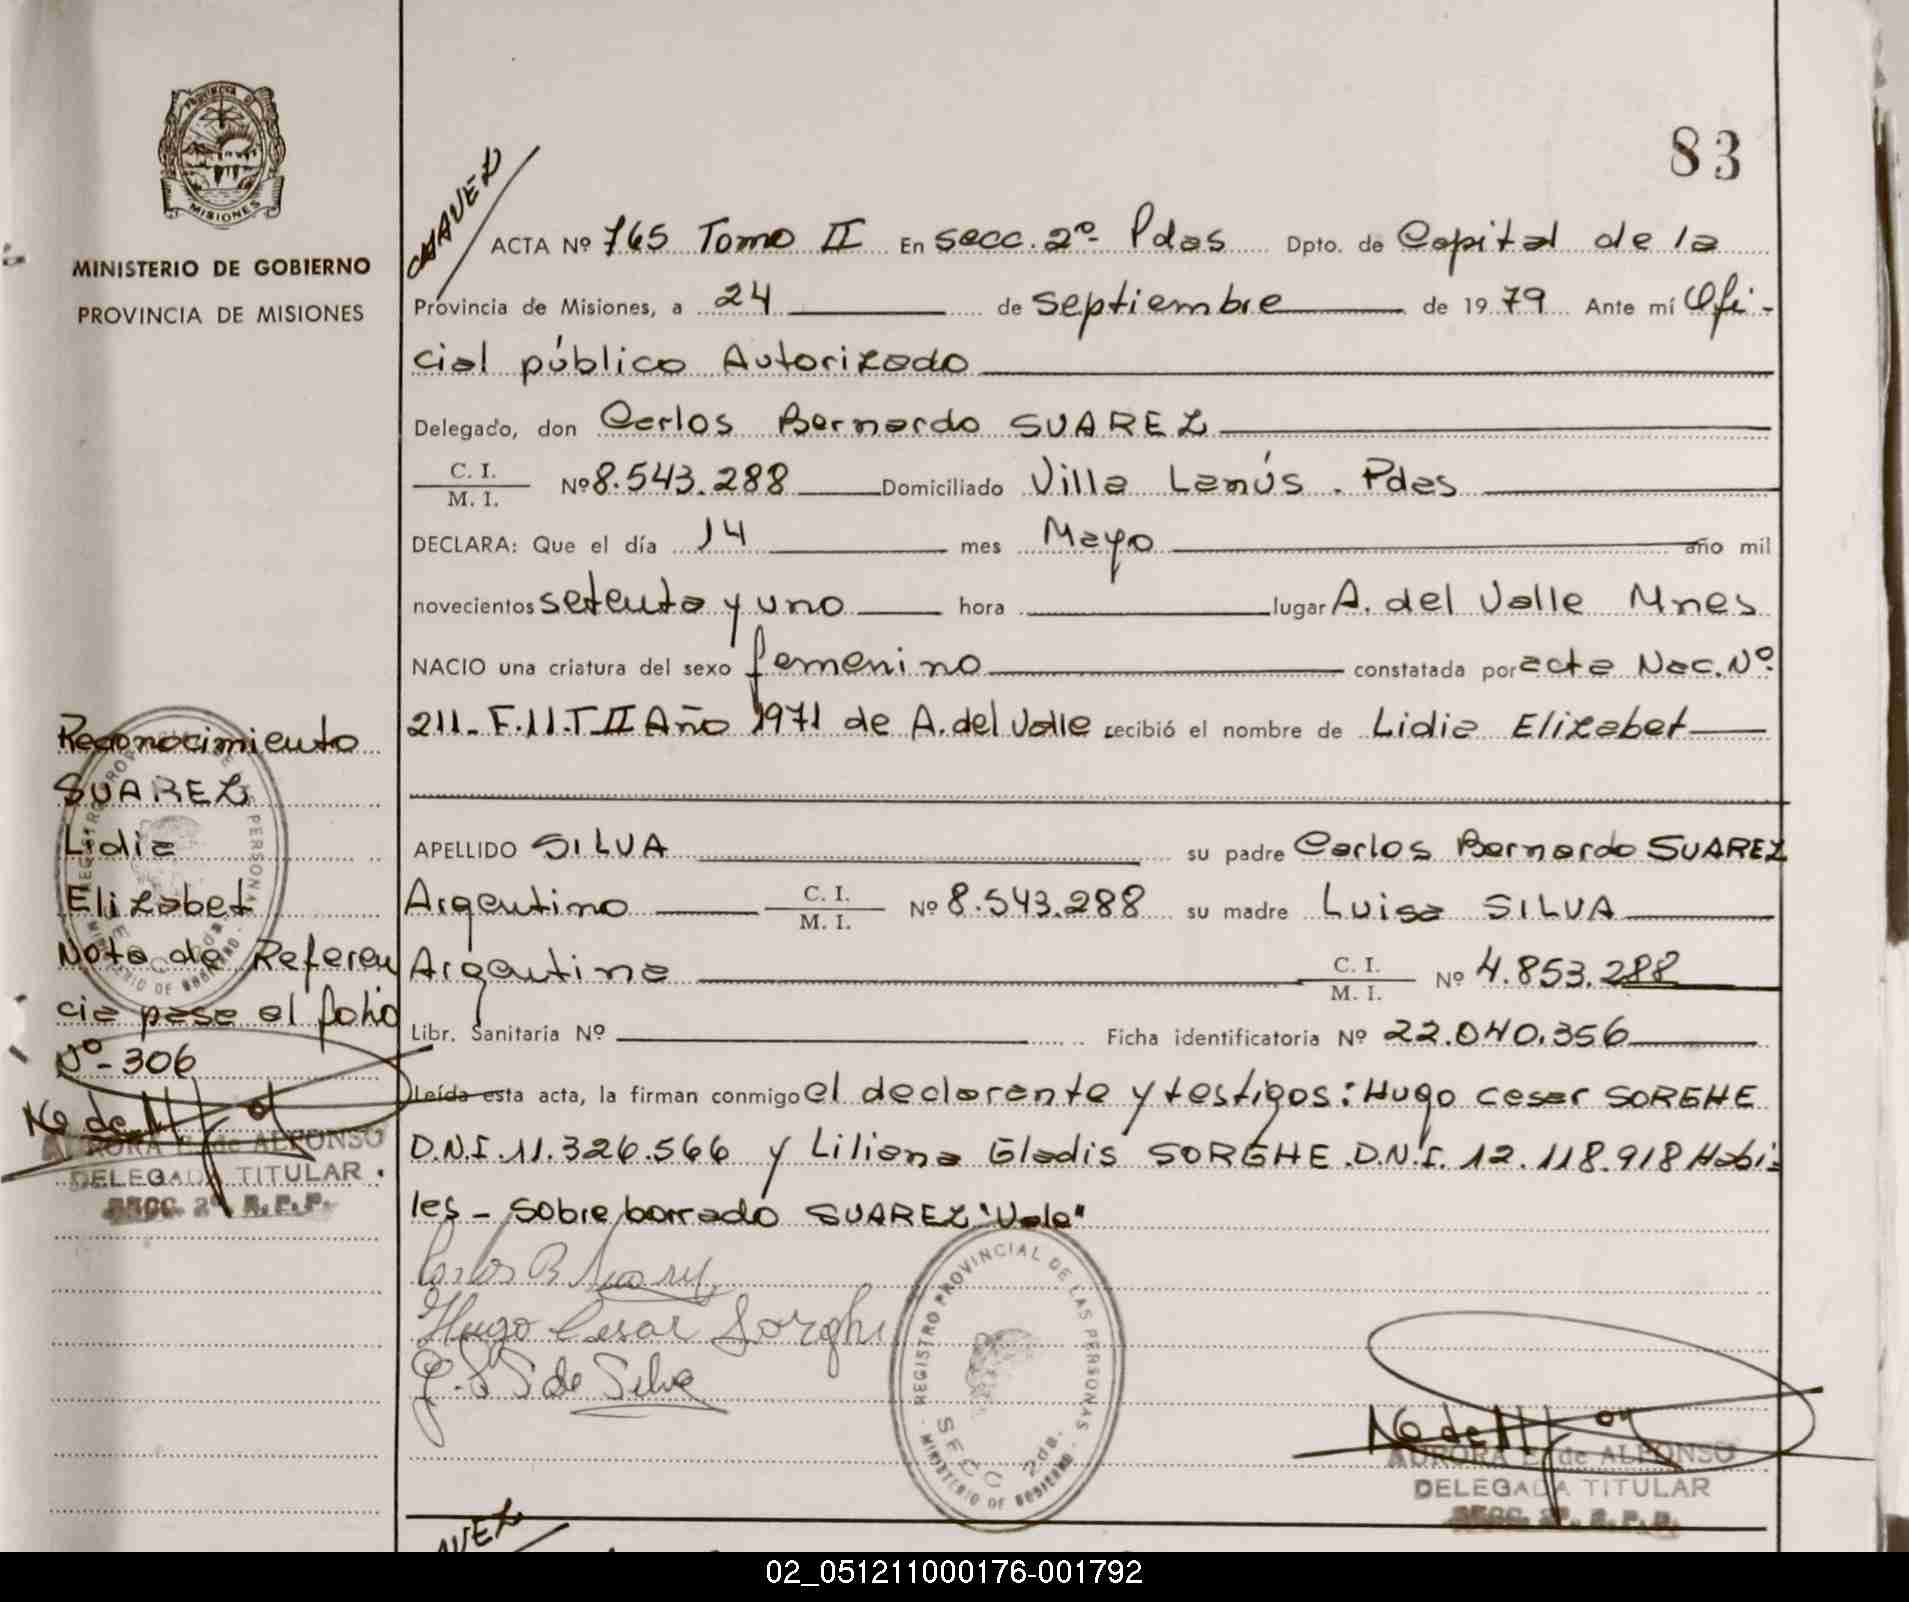 PROVINCIA DE
MISIONES
MINISTERIO DE GOBIERNO
PROVINCIA DE MISIONES
83
CHAVEZ
ACTA Nº 765 Tomo II En secc. 2º- Pdas Dpto. de Capital de la
Provincia de Misiones, a 24 de septiembre de 1979 Ante mí Ofi-
cial público Autorizado
Delegado, don Carlos Bernardo SUAREZ
C. I.
M. I. Nº 8.543.288 Domiciliado Villa Lanús. Pdas
DECLARA: Que el día 14 mes Mayo año mil
novecientos setenta y uno hora lugar A. del Valle Mnes
NACIO una criatura del sexo femenino constatada por acta Nac. Nº
211-F.11.T II Año 1971 de A. del Valle recibió el nombre de Lidia Elizabet
APELLIDO SILVA su padre Carlos Bernardo SUAREZ
Argentino C. I. M. I. Nº 8.543.288 su madre Luisa SILVA
Argentina C. I. M. I. Nº 4.853.288
Libr. Sanitaria Nº Ficha identificatoria Nº 22.040.356
Leída esta acta, la firman conmigo el declarante y testigos: Hugo Cesar SORGHE
D.N.I. 11.326.566 y Liliana Gladis SORGHE. D.N.I. 12.118.918 Habi-
les - sobre borrado SUAREZ "Vale"
Carlos B Suarez
Hugo Cesar Sorghe
de Silva
REGISTRO PROVINCIAL DE LAS PERSONAS
SECC 2da.
MINISTERIO DE GOBIERNO
AURORA E. de ALFONSO
DELEGADA TITULAR
SECC. 2ª. R. P. P.
Reconocimiento
SUAREZ
Lidia
Elizabet
Nota de Referen
cia pase al folio
Nº-306
AURORA E. de ALFONSO
DELEGADA TITULAR
SECC. 2ª R. P. P.
AVEZ
02_051211000176-001792